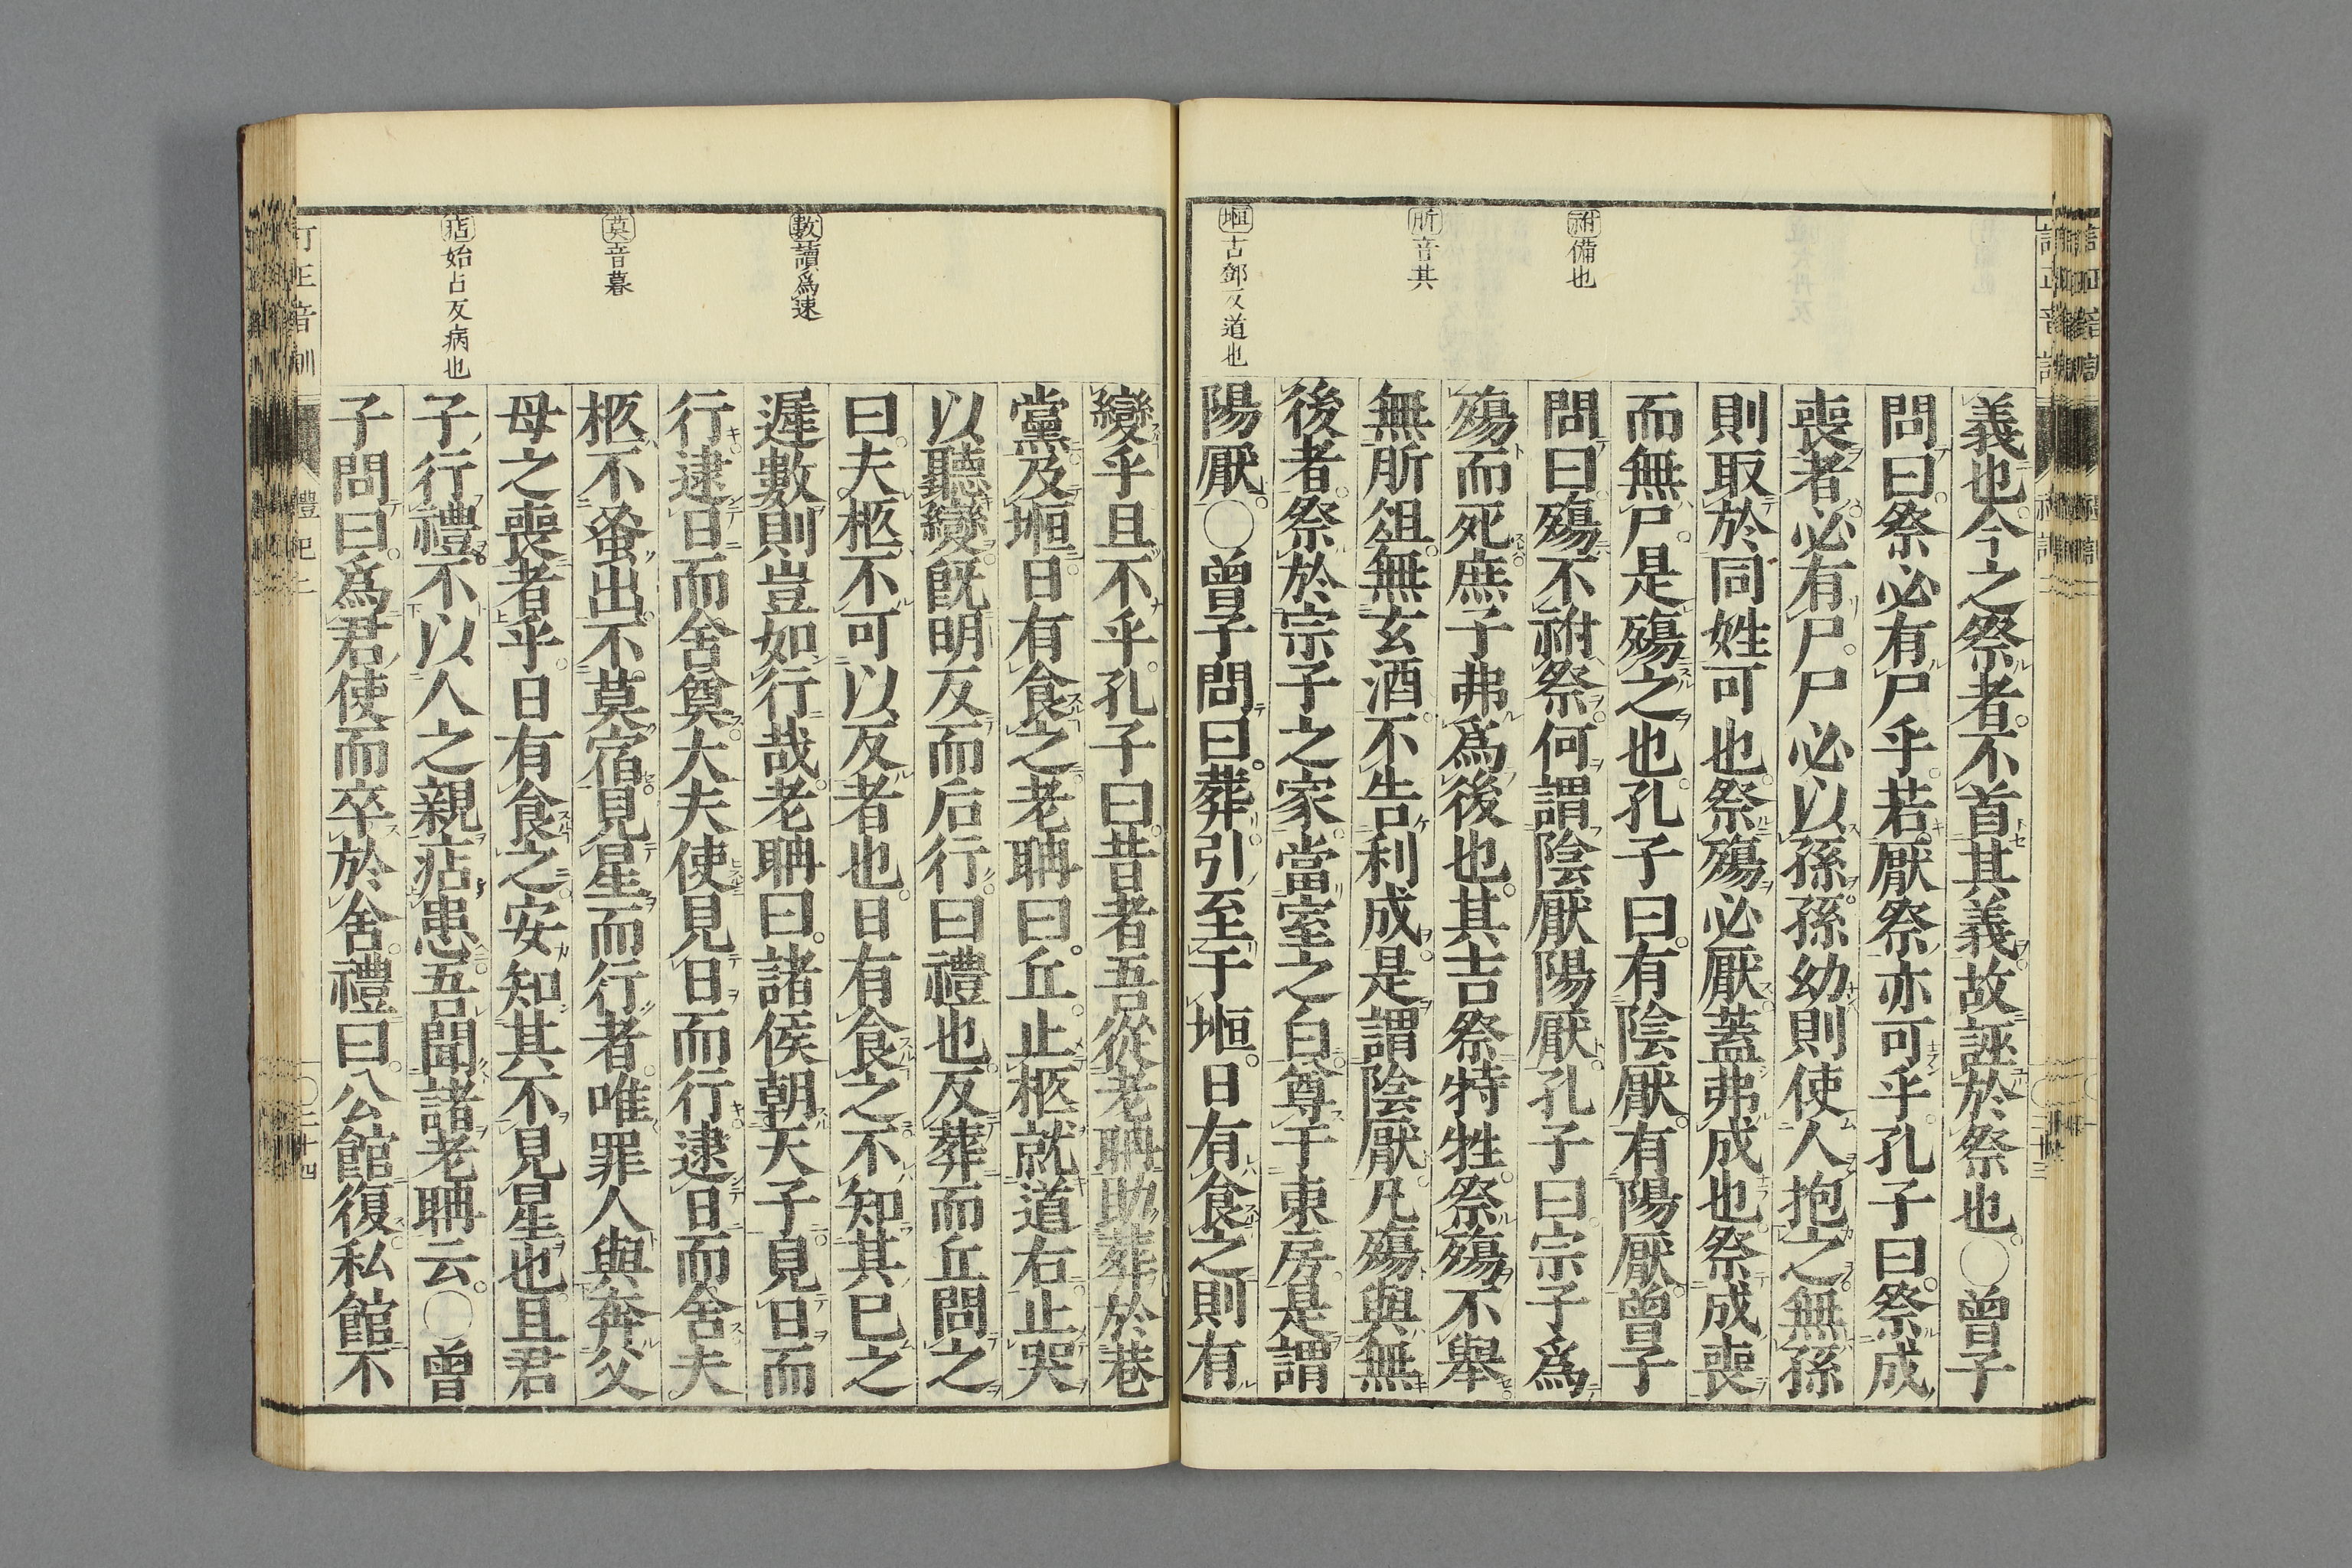 祔備也
肵音其
堩古鄧反道也
義也今之祭者不首其義故誣於祭也○曾子
問曰祭必有尸乎若厭祭亦可乎孔子曰祭成
喪者必有尸尸必以孫孫幼則使人抱之無孫
則取於同姓可也祭殤必厭蓋弗成也祭成喪
而無尸是殤之也孔子曰有陰厭有陽厭曾子
問曰殤不祔祭何謂陰厭陽厭孔子曰宗子爲
殤而死庶子弗爲後也其吉祭特牲祭殤不舉
無肵俎無玄酒不告利成是謂陰厭凡殤與無
後者祭於宗子之家當室之白尊于東房是謂
陽厭○曾子問曰葬引至于堩日有食之則有
數讀爲速
莫音暮
痁始占反病也
變乎且不乎孔子曰昔者吾從老聃助葬於巷
黨及堩日有食之老聃曰丘止柩就道右止哭
以聽變既明反而后行曰禮也反葬而丘問之
曰夫柩不可以反者也日有食之不知其已之
遲數則豈如行哉老聃曰諸侯朝天子見日而
行逮日而舍奠大夫使見日而行逮日而舍夫
柩不蚤出不莫宿見星而行者唯罪人與奔父
母之喪者乎日有食之安知其不見星也且君
子行禮不以人之親痁患吾聞諸老聃云○曾
子問曰爲君使而卒於舍禮曰公館復私館不
訂正音訓
禮記二
○三十四